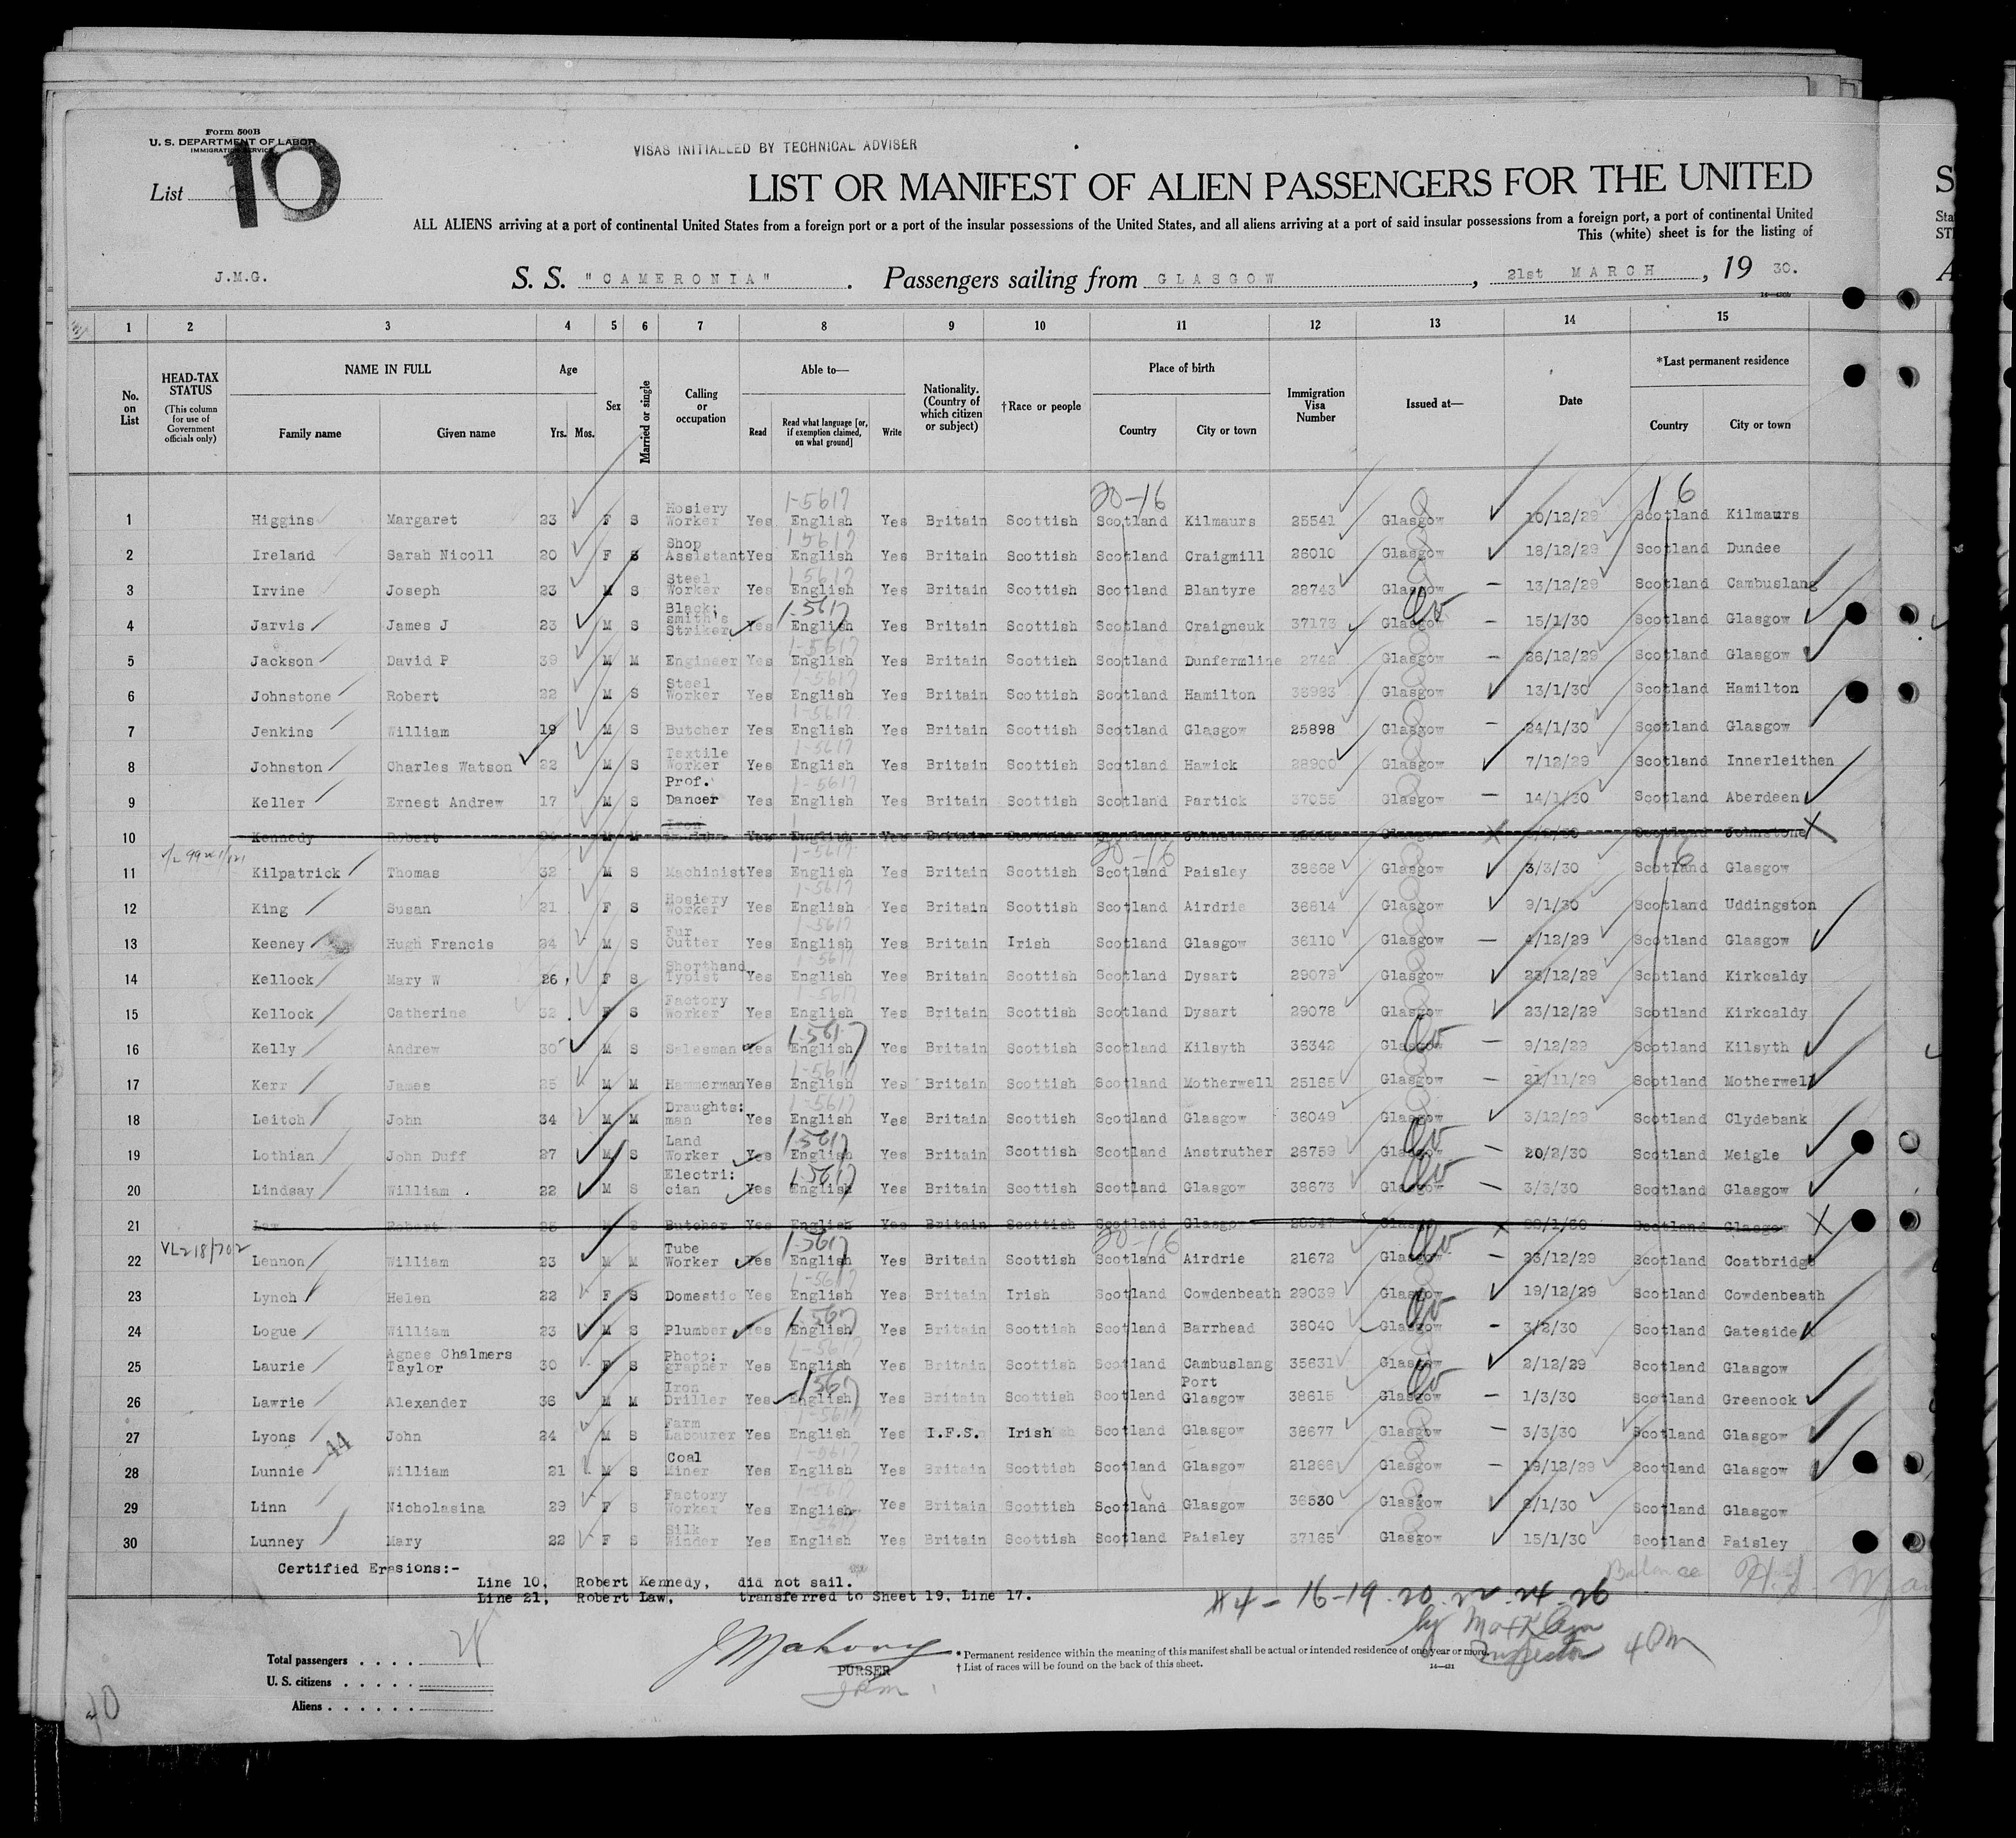 Form 500B
U. S. DEPARTMENT OF LABOR
IMMIGRATION SERVICE
List 10
VISAS INITIALLED BY TECHNICAL ADVISER
LIST OR MANIFEST OF ALIEN PASSENGERS FOR THE UNITED
ALL ALIENS arriving at a port of continental United States from a foreign port or a port of the insular possessions of the United States, and all aliens arriving at a port of said insular possessions from a foreign port, a port of continental United
This (white) sheet is for the listing of
J.M.G. S. S. "CAMERONIA". Passengers sailing from GLASGOW, 21st MARCH, 19 30.
1 2 3 4 5 6 7 8 9 10 11 12 13 14 15
No. on List HEAD-TAX STATUS (This column for use of Government officials only) NAME IN FULL Family name Given name Age Yrs. Mos. Sex Married or single Calling or occupation Able to— Read Read what language [or, if exemption claimed, on what ground] Write Nationality. (Country of which citizen or subject) †Race or people Place of birth Country City or town Immigration Visa Number Issued at— Date *Last permanent residence Country City or town
20-16 16
1 Higgins Margaret 23 F S Hosiery Worker Yes 1-5617 English Yes Britain Scottish Scotland Kilmaurs 25541 Glasgow 10/12/29 Scotland Kilmaurs
2 Ireland Sarah Nicoll 20 F S Shop Assistant Yes 15617 English Yes Britain Scottish Scotland Craigmill 26010 Glasgow 18/12/29 Scotland Dundee
3 Irvine Joseph 23 M S Steel Worker Yes 15617 English Yes Britain Scottish Scotland Blantyre 28743 Glasgow 13/12/29 Scotland Cambuslang
4 Jarvis James J 23 M S Black: smith's Striker Yes 1-5617 English Yes Britain Scottish Scotland Craigneuk 37173 Glasgow 15/1/30 Scotland Glasgow
5 Jackson David P 39 M M Engineer Yes 1-5617 English Yes Britain Scottish Scotland Dunfermline Glasgow 26/12/29 Scotland Glasgow
6 Johnstone Robert 22 M S Steel Worker Yes 1-5617 English Yes Britain Scottish Scotland Hamilton Glasgow 13/1/30 Scotland Hamilton
7 Jenkins William 19 M S Butcher Yes 1-5617 English Yes Britain Scottish Scotland Glasgow 25898 Glasgow 24/1/30 Scotland Glasgow
8 Johnston Charles Watson 22 M S Textile Worker Yes 1-5617 English Yes Britain Scottish Scotland Hawick 28900 Glasgow 7/12/29 Scotland Innerleithen
9 Keller Ernest Andrew 17 M S Prof. Dancer Yes 1-5617 English Yes Britain Scottish Scotland Partick 37055 Glasgow 14/1/30 Scotland Aberdeen
10 Kennedy Robert M M Iron Yes English Yes Britain Scottish Scotland Johnstone Glasgow Scotland Johnstone X
20-16 16
11 Kilpatrick Thomas 32 M S Machinist Yes 1-5617 English Yes Britain Scottish Scotland Paisley 38668 Glasgow 3/3/30 Scotland Glasgow
12 King Susan 21 F S Hosiery Worker Yes 1-5617 English Yes Britain Scottish Scotland Airdrie 36814 Glasgow 9/1/30 Scotland Uddingston
13 Keeney Hugh Francis 24 M S Fur Cutter Yes 1-5617 English Yes Britain Irish Scotland Glasgow 36110 Glasgow 4/12/29 Scotland Glasgow
14 Kellock Mary W 26 F S Shorthand Typist Yes 1-5617 English Yes Britain Scottish Scotland Dysart 29079 Glasgow 23/12/29 Scotland Kirkcaldy
15 Kellock Catherine 32 F S Factory Worker Yes 1-5617 English Yes Britain Scottish Scotland Dysart 29078 Glasgow 23/12/29 Scotland Kirkcaldy
16 Kelly Andrew 30 M S Salesman Yes 1-5617 English Yes Britain Scottish Scotland Kilsyth 36342 Glasgow 9/12/29 Scotland Kilsyth
17 Kerr James 25 M M Hammerman Yes 1-5617 English Yes Britain Scottish Scotland Motherwell 25165 Glasgow 21/11/29 Scotland Motherwell
18 Leitch John 34 M M Draughts: man Yes 1-5617 English Yes Britain Scottish Scotland Glasgow 36049 Glasgow 3/12/29 Scotland Clydebank
19 Lothian John Duff 27 M S Land Worker Yes 1-5617 English Yes Britain Scottish Scotland Anstruther 26759 Glasgow 20/2/30 Scotland Meigle
20 Lindsay William 22 M S Electri: cian Yes 1-5617 English Yes Britain Scottish Scotland Glasgow 38673 Glasgow 3/3/30 Scotland Glasgow
21 Law Robert 25 M S Butcher Yes English Yes Britain Scottish Scotland Glasgow Glasgow X Scotland Glasgow X
VL218/702 20-16
22 Lennon William 23 M M Tube Worker Yes 1-5617 English Yes Britain Scottish Scotland Airdrie 21672 Glasgow 23/12/29 Scotland Coatbridge
23 Lynch Helen 22 F S Domestic Yes 1-5617 English Yes Britain Irish Scotland Cowdenbeath 29039 Glasgow 19/12/29 Scotland Cowdenbeath
24 Logue William 23 M S Plumber Yes 1-5617 English Yes Britain Scottish Scotland Barrhead 38040 Glasgow 3/2/30 Scotland Gateside
25 Laurie Agnes Chalmers Taylor 30 F S Photo: grapher Yes 1-5617 English Yes Britain Scottish Scotland Cambuslang 35631 Glasgow 2/12/29 Scotland Glasgow
26 Lawrie Alexander 36 M M Iron Driller Yes 1567 English Yes Britain Scottish Scotland Port Glasgow 38615 Glasgow 1/3/30 Scotland Greenock
27 Lyons 44 John 24 M S Farm Labourer Yes 1-5617 English Yes I.F.S. Irish Scotland Glasgow 38677 Glasgow 3/3/30 Scotland Glasgow
28 Lunnie William 21 M S Coal Miner Yes 1-5617 English Yes Britain Scottish Scotland Glasgow 21266 Glasgow 19/12/29 Scotland Glasgow
29 Linn Nicholasina 29 F S Factory Worker Yes 1-5617 English Yes Britain Scottish Scotland Glasgow 36530 Glasgow 8/1/30 Scotland Glasgow
30 Lunney Mary 22 F S Silk Winder Yes English Yes Britain Scottish Scotland Paisley 37165 Glasgow 15/1/30 Scotland Paisley
Certified Erasions:-
Line 10, Robert Kennedy, did not sail.
Line 21, Robert Law, transferred to Sheet 19, Line 17.
Balance
#4 - 16-19 20 22 24-26
by
Inspector 4PM
J Mahony
PURSER
Total passengers 28
U. S. citizens
Aliens
* Permanent residence within the meaning of this manifest shall be actual or intended residence of one year or more.
† List of races will be found on the back of this sheet.